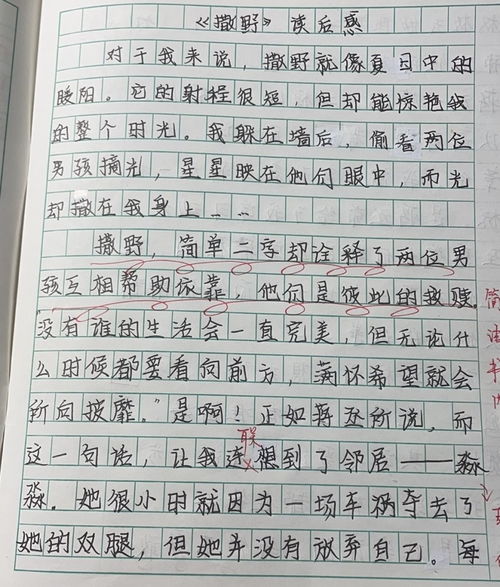 《撒野》读后感
对于我来说，撒野就像夏日中的
暖阳。它的射程很短，但却能惊艳我
的整个时光。我躲在墙后，偷看两位
男孩摘光，星星映在他们眼中，而光
却撒在我身上……
撒野，简单二字却诠释了两位男
孩互相帮助依靠，他们是彼此的救赎。
没有谁的生活会一直完美，但无论什
么时候都要看向前方，满怀希望就会
所向披靡。"是啊！正如蒋丞所说，而
联
这一句话，让我连想到了邻居——淼
淼。她很小时就因为一场车祸夺去了
她的双腿，但她并没有放弃自己。每
简
洁